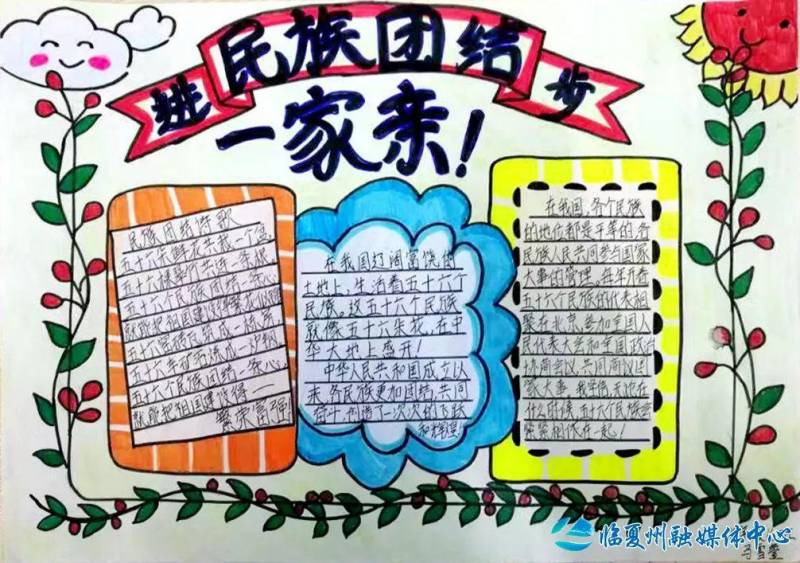 民族团结
进 步
一家亲!
民族团结诗歌
五十六朵鲜花共栽一个盆
五十六
五十六个民族团结一条心
就能把祖国建设得
五十六
五十六
五十六个民族团结一条心
就能把祖国建设得
繁荣富强!
在我国辽阔富饶的
土地上,生活着五十六个
民族。这五十六个民族
就像五十六朵花,在中
华大地上盛开!
中华人民共和国成立以
来,各民族更加团结,共同
奋斗,创造了一次次的飞跃
和辉煌!
在我国,各个民族
的地位都是平等的,各
民族人民共同参与国家
大事的管理。每年
五十六个民族的代表相
聚在北京,参加全国人
民代表大会和全国政治
协商会议,共同商议国
家大事。我坚信,无论在
什么时候,五十六个民族会
紧紧相依在一起!
临夏州融媒体中心
马雪莹